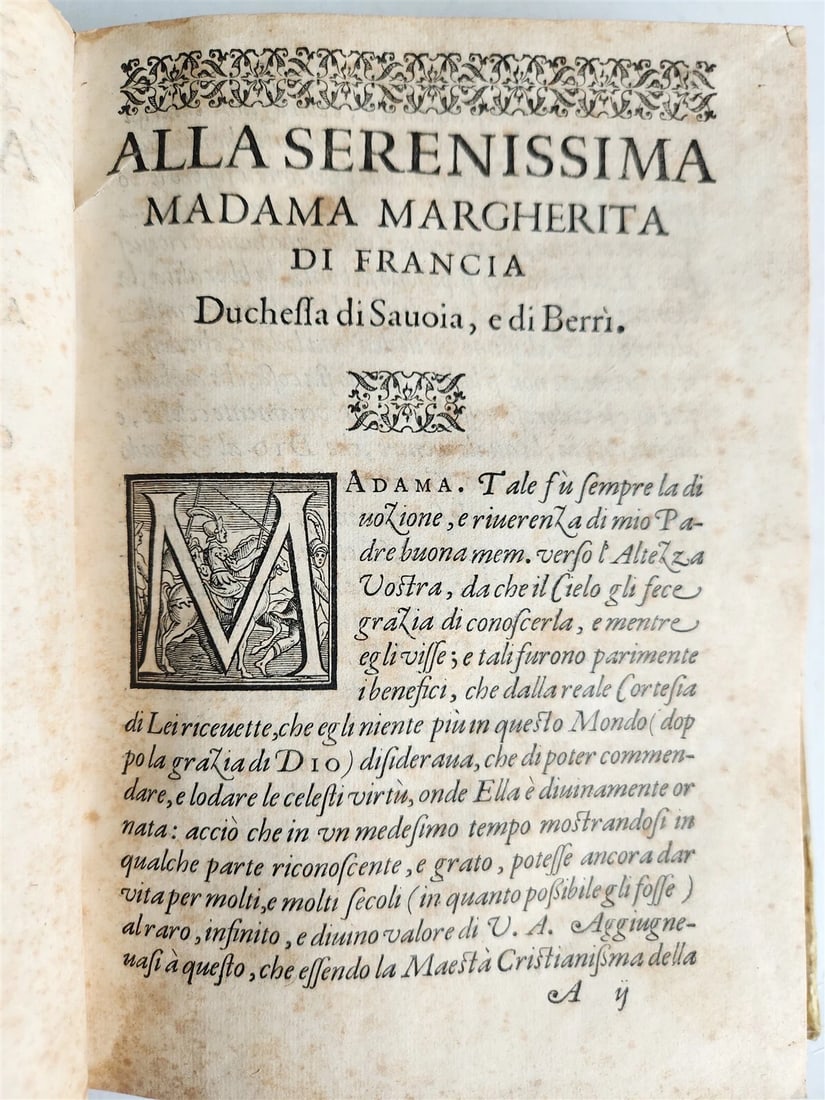 ALLA SERENISSIMA
MADAMA MARGHERITA
DI FRANCIA
Ducheſſa di Sauoia, e di Berrì.
MADAMA. Tale fù ſempre la di
uozione, e riuerenza di mio Pa-
dre buona mem. verſo l'Altezza
Vostra, da che il Cielo gli fece
grazia di conoſcerla, e mentre
egli viſſe; e tali furono parimente
i benefici, che dalla reale Corteſia
di Lei riceuette, che egli niente più in questo Mondo (dop
po la grazia di DIO) diſideraua, che di poter commen-
dare, e lodare le celeſti virtù, onde Ella è diuinamente or
nata: acciò che in vn medeſimo tempo mostrandoſi in
qualche parte riconoſcente, e grato, poteſſe ancora dar
vita per molti, e molti ſecoli (in quanto poßibile gli foſſe)
al raro, infinito, e diuino valore di V. A. Aggiugne-
uaſi à questo, che eſſendo la Maestà Cristianißma della
A ij